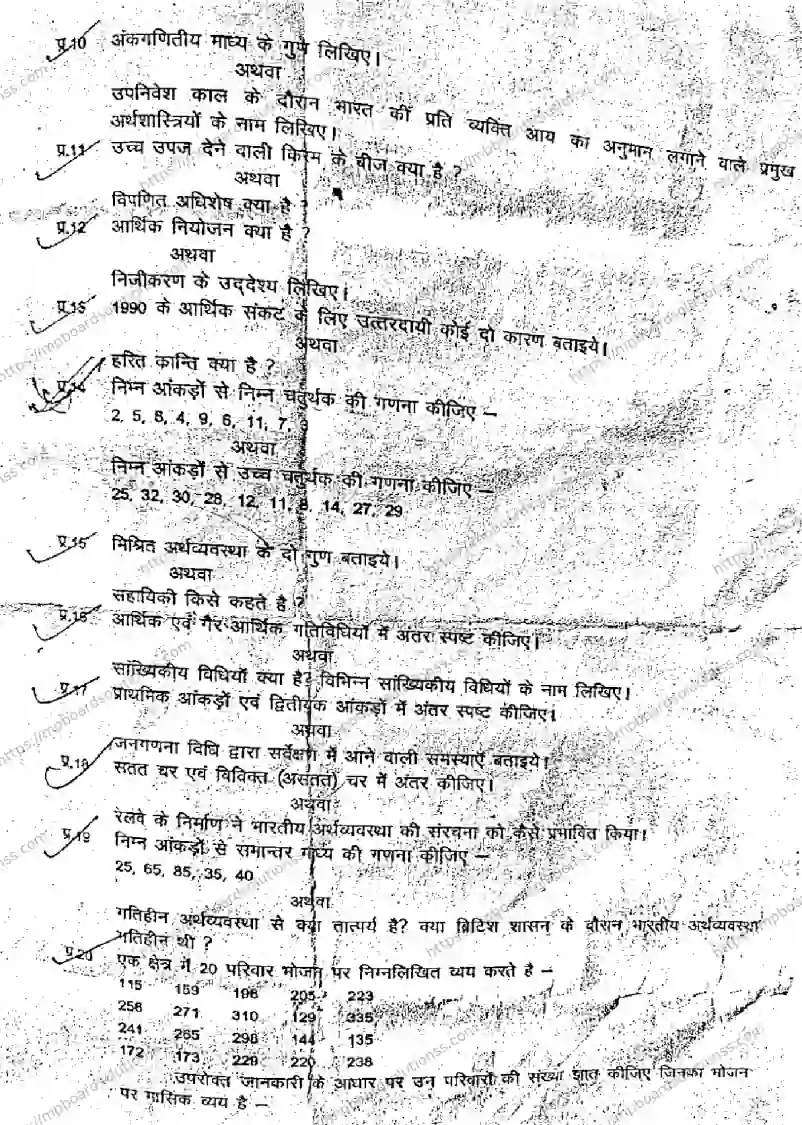 प्र.10 अंकगणितीय माध्य के गुण लिखिए।
अथवा
उपनिवेश काल के दौरान भारत की प्रति व्यक्ति आय का अनुमान लगाने वाले प्रमुख
अर्थशास्त्रियों के नाम लिखिए।
प्र.11 उच्च उपज देने वाली किस्म के बीज क्या है ?
अथवा
विपणित अधिशेष क्या है ?
प्र.12 आर्थिक नियोजन क्या है ?
अथवा
निजीकरण के उद्देश्य लिखिए।
1990 के आर्थिक संकट के लिए उत्तरदायी कोई दो कारण बताइये।
अथवा
हरित कान्ति क्या है ?
निम्न आंकड़ों से निम्न चतुर्थक की गणना कीजिए –
2, 5, 8, 4, 9, 6, 11, 7,
अथवा
निम्न आंकड़ों से उच्च चतुर्थक की गणना कीजिए –
25, 32, 30, 28, 12, 11, 8, 14, 27, 29
प्र.15 मिश्रित अर्थव्यवस्था के दो गुण बताइये।
अथवा
सहायिकी किसे कहते है ?
प्र.16 आर्थिक एवं गैर आर्थिक गतिविधियों में अंतर स्पष्ट कीजिए।
अथवा
सांख्यिकीय विधियों क्या है? विभिन्न सांख्यिकीय विधियों के नाम लिखिए।
प्र.17 प्राथमिक आंकड़ों एवं द्वितीयक आंकड़ों में अंतर स्पष्ट कीजिए।
अथवा
जनगणना विधि द्वारा सर्वेक्षण में आने वाली समस्याएँ बताइये।
प्र.18 सतत चर एवं विविक्त (असतत) चर में अंतर कीजिए।
अथवा
रेलवे के निर्माण ने भारतीय अर्थव्यवस्था की संरचना को कैसे प्रभावित किया।
प्र.19 निम्न आंकड़ों से समान्तर माध्य की गणना कीजिए –
25, 65, 85, 35, 40
अथवा
गतिहीन अर्थव्यवस्था से क्या तात्पर्य है? क्या ब्रिटिश शासन के दौरान भारतीय अर्थव्यवस्था
गतिहीन थी ?
प्र.20 एक क्षेत्र में 20 परिवार भोजन पर निम्नलिखित व्यय करते है –
115 159 196 205 223
256 271 310 129 335
241 265 298 144 135
172 173 229 220 238
उपरोक्त जानकारी के आधार पर उन परिवारों की संख्या ज्ञात कीजिए जिनका भोजन
पर मासिक व्यय है –